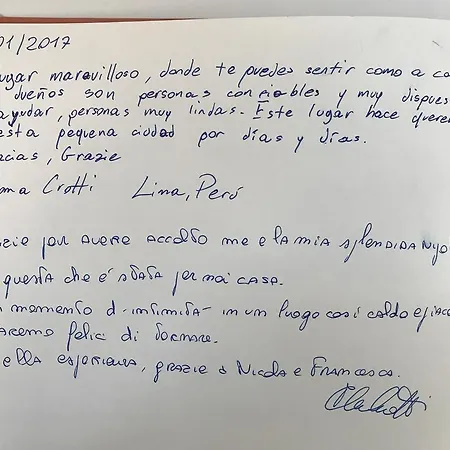 01/2017
lugar maravilloso, donde te puedes sentir como a ca
dueños son personas confiables y muy dispues
ayudar, personas muy lindas. Este lugar hace querer
esta pequena ciudad por días y días.
acias, Grazie
Crotti Lima, Perú
zie per avere accolto me e la mia splendida
questa che è stata per noi casa.
momento d'intimità in un luogo così caldo e
aremo felici di tornare.
ella esperienza, grazie a Nicola e Francesca.